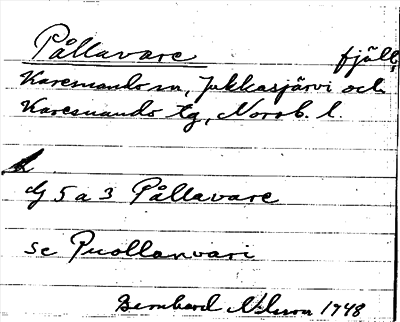 Pållavare fjäll,
Karesuando sn, Jukkasjärvi och
Karesuando tg, Norrb. l.
dg 5 a 3 Pållavare
se Puollanvari
Bernhard Nilsson 1948